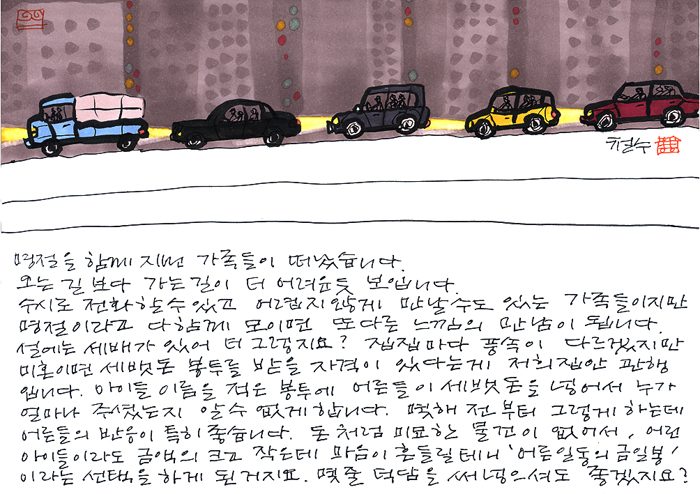 철수
명절을 함께 지낸 가족들이 떠났습니다.
오는 길보다 가는 길이 더 어려운듯 보입니다.
수시로 전화할 수 있고 어렵지않게 만날 수도 있는 가족들이지만
명절이라고 다함께 모이면 또 다른 느낌의 만남이 됩니다.
설에는 세배가 있어 더 그렇지요? 집집마다 풍속이 다르겠지만
미혼이면 세뱃돈 봉투를 받을 자격이 있다는게 저희집안 관행
입니다. 아이들 이름을 적은 봉투에 어른들이 세뱃돈을 넣어서 누가
얼마나 주셨는지 알 수 없게 합니다. 몇해 전부터 그렇게 하는데
어른들의 반응이 특히 좋습니다. 돈처럼 미묘한 물건이 없어서, 어린
아이들이라도 금액의 크고 작은데 마음이 흔들릴테니 '어른일동의 금일봉'
이라는 선택을 하게 된거지요. 몇줄 덕담을 써 넣으셔도 좋겠지요?